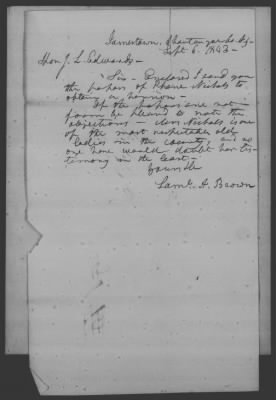 Jamestown, Chautauqua Co. N.Y.
Sept 6. 1843 -
Hon J. L. Edwards -
Sir - Enclosed I send you
the papers of Nichols to
obtain a pension -
If the papers are not in
form be pleased to note the
objections - Mrs Nichols is one
of the most respectable old
ladies in the county, and no
one here would doubt her tes-
timony in the least -
Yours &c
Saml. A. Brown